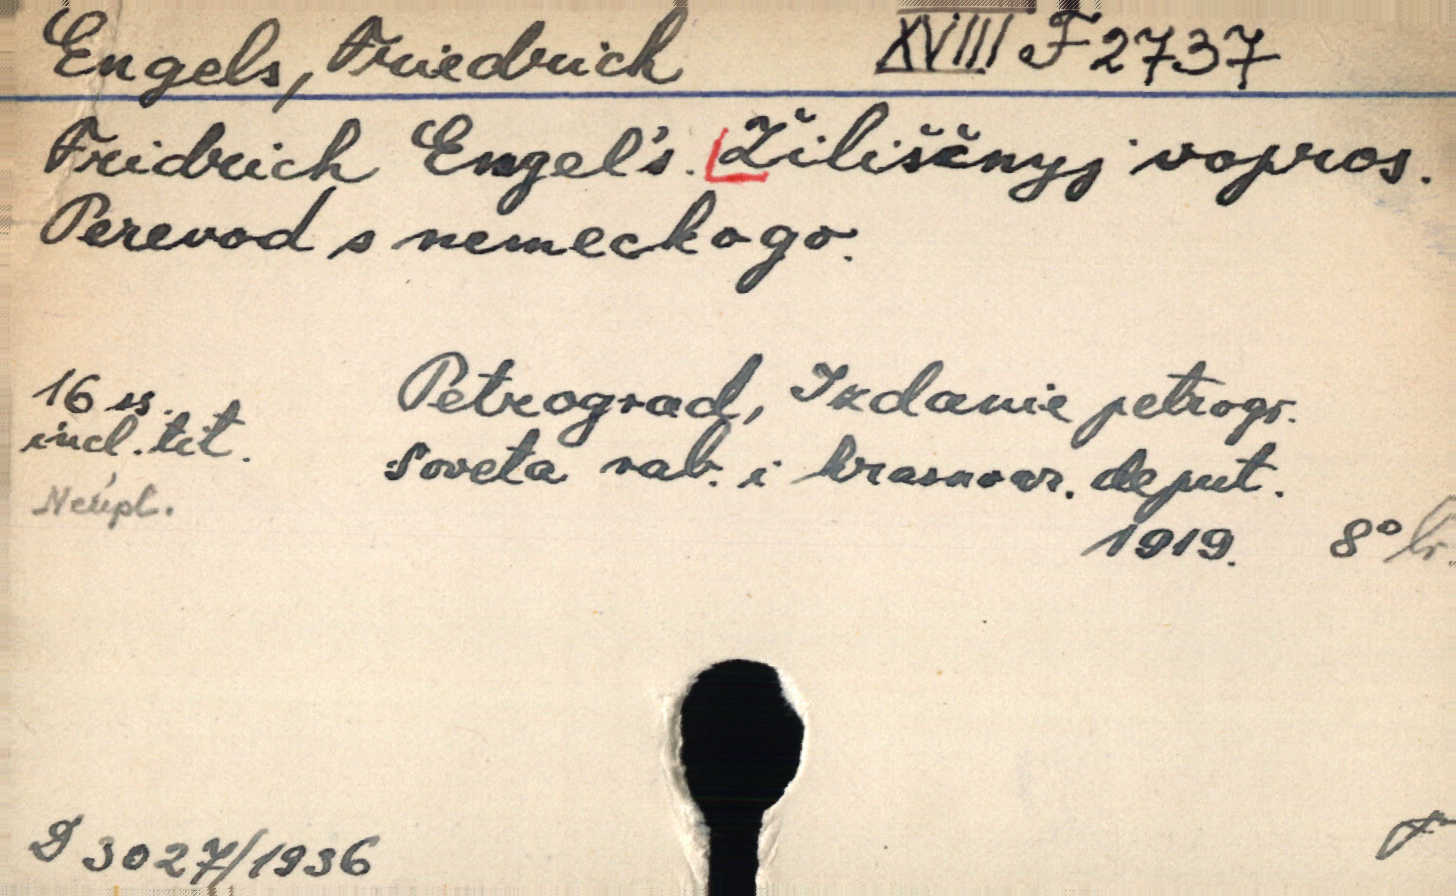 Engels, Friedrich XVIII F 2737
Fridrich Engel's. Žiliščnyj vopros.
Perevod s nemeckogo.
16 ss. Petrograd, Izdanie petrogr.
incl. tit. soveta rab. i krasnoar. deput.
Neúpl.
1919. 8° br.
D 3027/1936